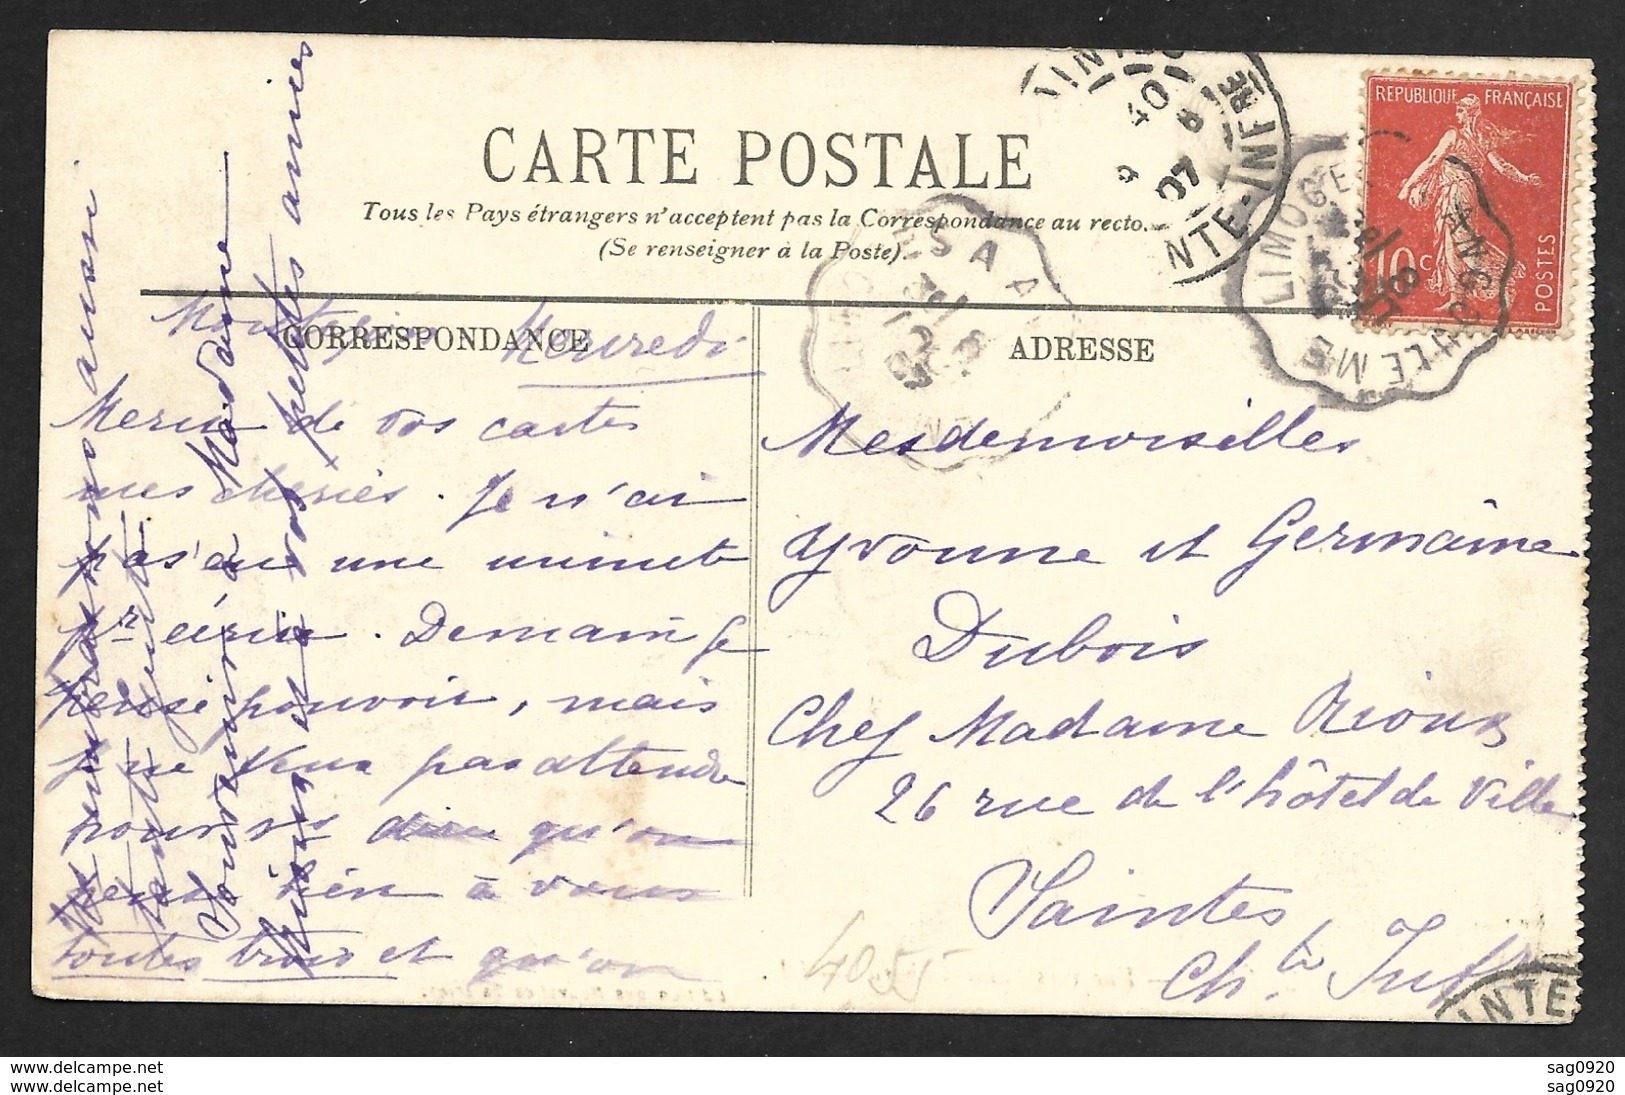 CARTE POSTALE
Tous les Pays étrangers n'acceptent pas la Correspondance au recto.
(Se renseigner à la Poste).
CORRESPONDANCE
ADRESSE
REPUBLIQUE FRANÇAISE
10 c
POSTES
LIMOGES
ANGOULEME
07
NTE-INFRE
Mercredi
Merci de vos cartes
mes chéries. Je n'ai
pas eu une minute
pr écrire. Demain je
pense pouvoir, mais
je ne veux pas attendre
pour vs dire qu'on
pense bien à vous
toutes trois et qu'on
Souvenirs à Madame
et à vos petites amies
aussi
Mesdemoiselles
Yvonne et Germaine
Dubois
Chez Madame Rioux
26 rue de l'hôtel de Ville
Saintes
Ch. te Infre
INTE
405
sag0920
delcampe.net
sag0920
delcampe.net